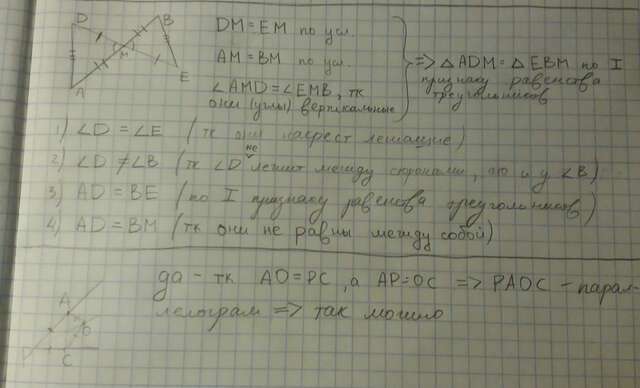 D
B
M
A
E
DM = EM по усл.
AM = BM по усл.
∠AMD = ∠EMB, тк
они (углы) вертикальные
=> △ADM = △EBM по I
признаку равенства
треугольников
1) ∠D = ∠E (тк они накрест лежащие)
2) ∠D ≠ ∠B (тк ∠D не лежит между сторонами, и у ∠B)
3) AD = BE (по I признаку равенства треугольников)
4) AD = BM (тк они не равны между собой)
да - тк AO = PC, а AP = OC => PAOC - парал-
лелограм => так можно
A
C